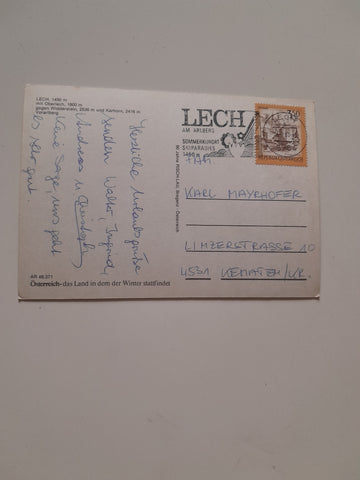 LECH, 1450 m
mit Oberlech, 1800 m
gegen Widderstein, 2536 m und Karhorn, 2416 m
Vorarlberg
Herzliche Urlaubsgrüße
senden Walter, Ingrid,
Andreas u. Christoph
Keine Sorge, uns geht
es sehr gut.
AR 46.371
Österreich - das Land in dem der Winter stattfindet
LECH
AM ARLBERG
SOMMERKURORT
SKIPARADIES
1450 m
REPUBLIK ÖSTERREICH
KARL MAYRHOFER
LINZERSTRASSE 10
4531 KEMATEN/KR.